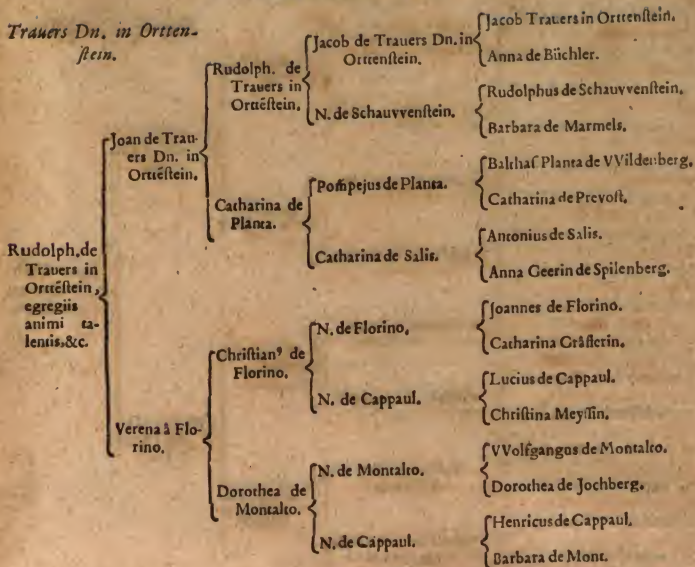 Trauers Dn. in Ortten-
stein.
Rudolph. de
Trauers in
Orttēstein,
egregiis
animi ta-
lentis, &c.
Joan de Trau-
ers Dn. in
Orttēstein.
Verena â Flo-
rino.
Rudolph. de
Trauers in
Orttēstein.
Catharina de
Planta.
Christianꝰ de
Florino.
Dorothea de
Montalto.
Jacob de Trauers Dn. in
Orttenstein.
N. de Schauvvenstein.
Pompejus de Planta.
Catharina de Salis.
N. de Florino.
N. de Cappaul.
N. de Montalto.
N. de Cappaul.
Jacob Trauers in Orttenstein.
Anna de Büchler.
Rudolphus de Schauvvenstein.
Barbara de Marmels.
Balthas Planta de VVildenberg.
Catharina de Prevost.
Antonius de Salis.
Anna Geerin de Spilenberg.
Joannes de Florino.
Catharina Grässerin.
Lucius de Cappaul.
Christina Meyssin.
VVolfgangus de Montalto.
Dorothea de Jochberg.
Henricus de Cappaul.
Barbara de Mont.